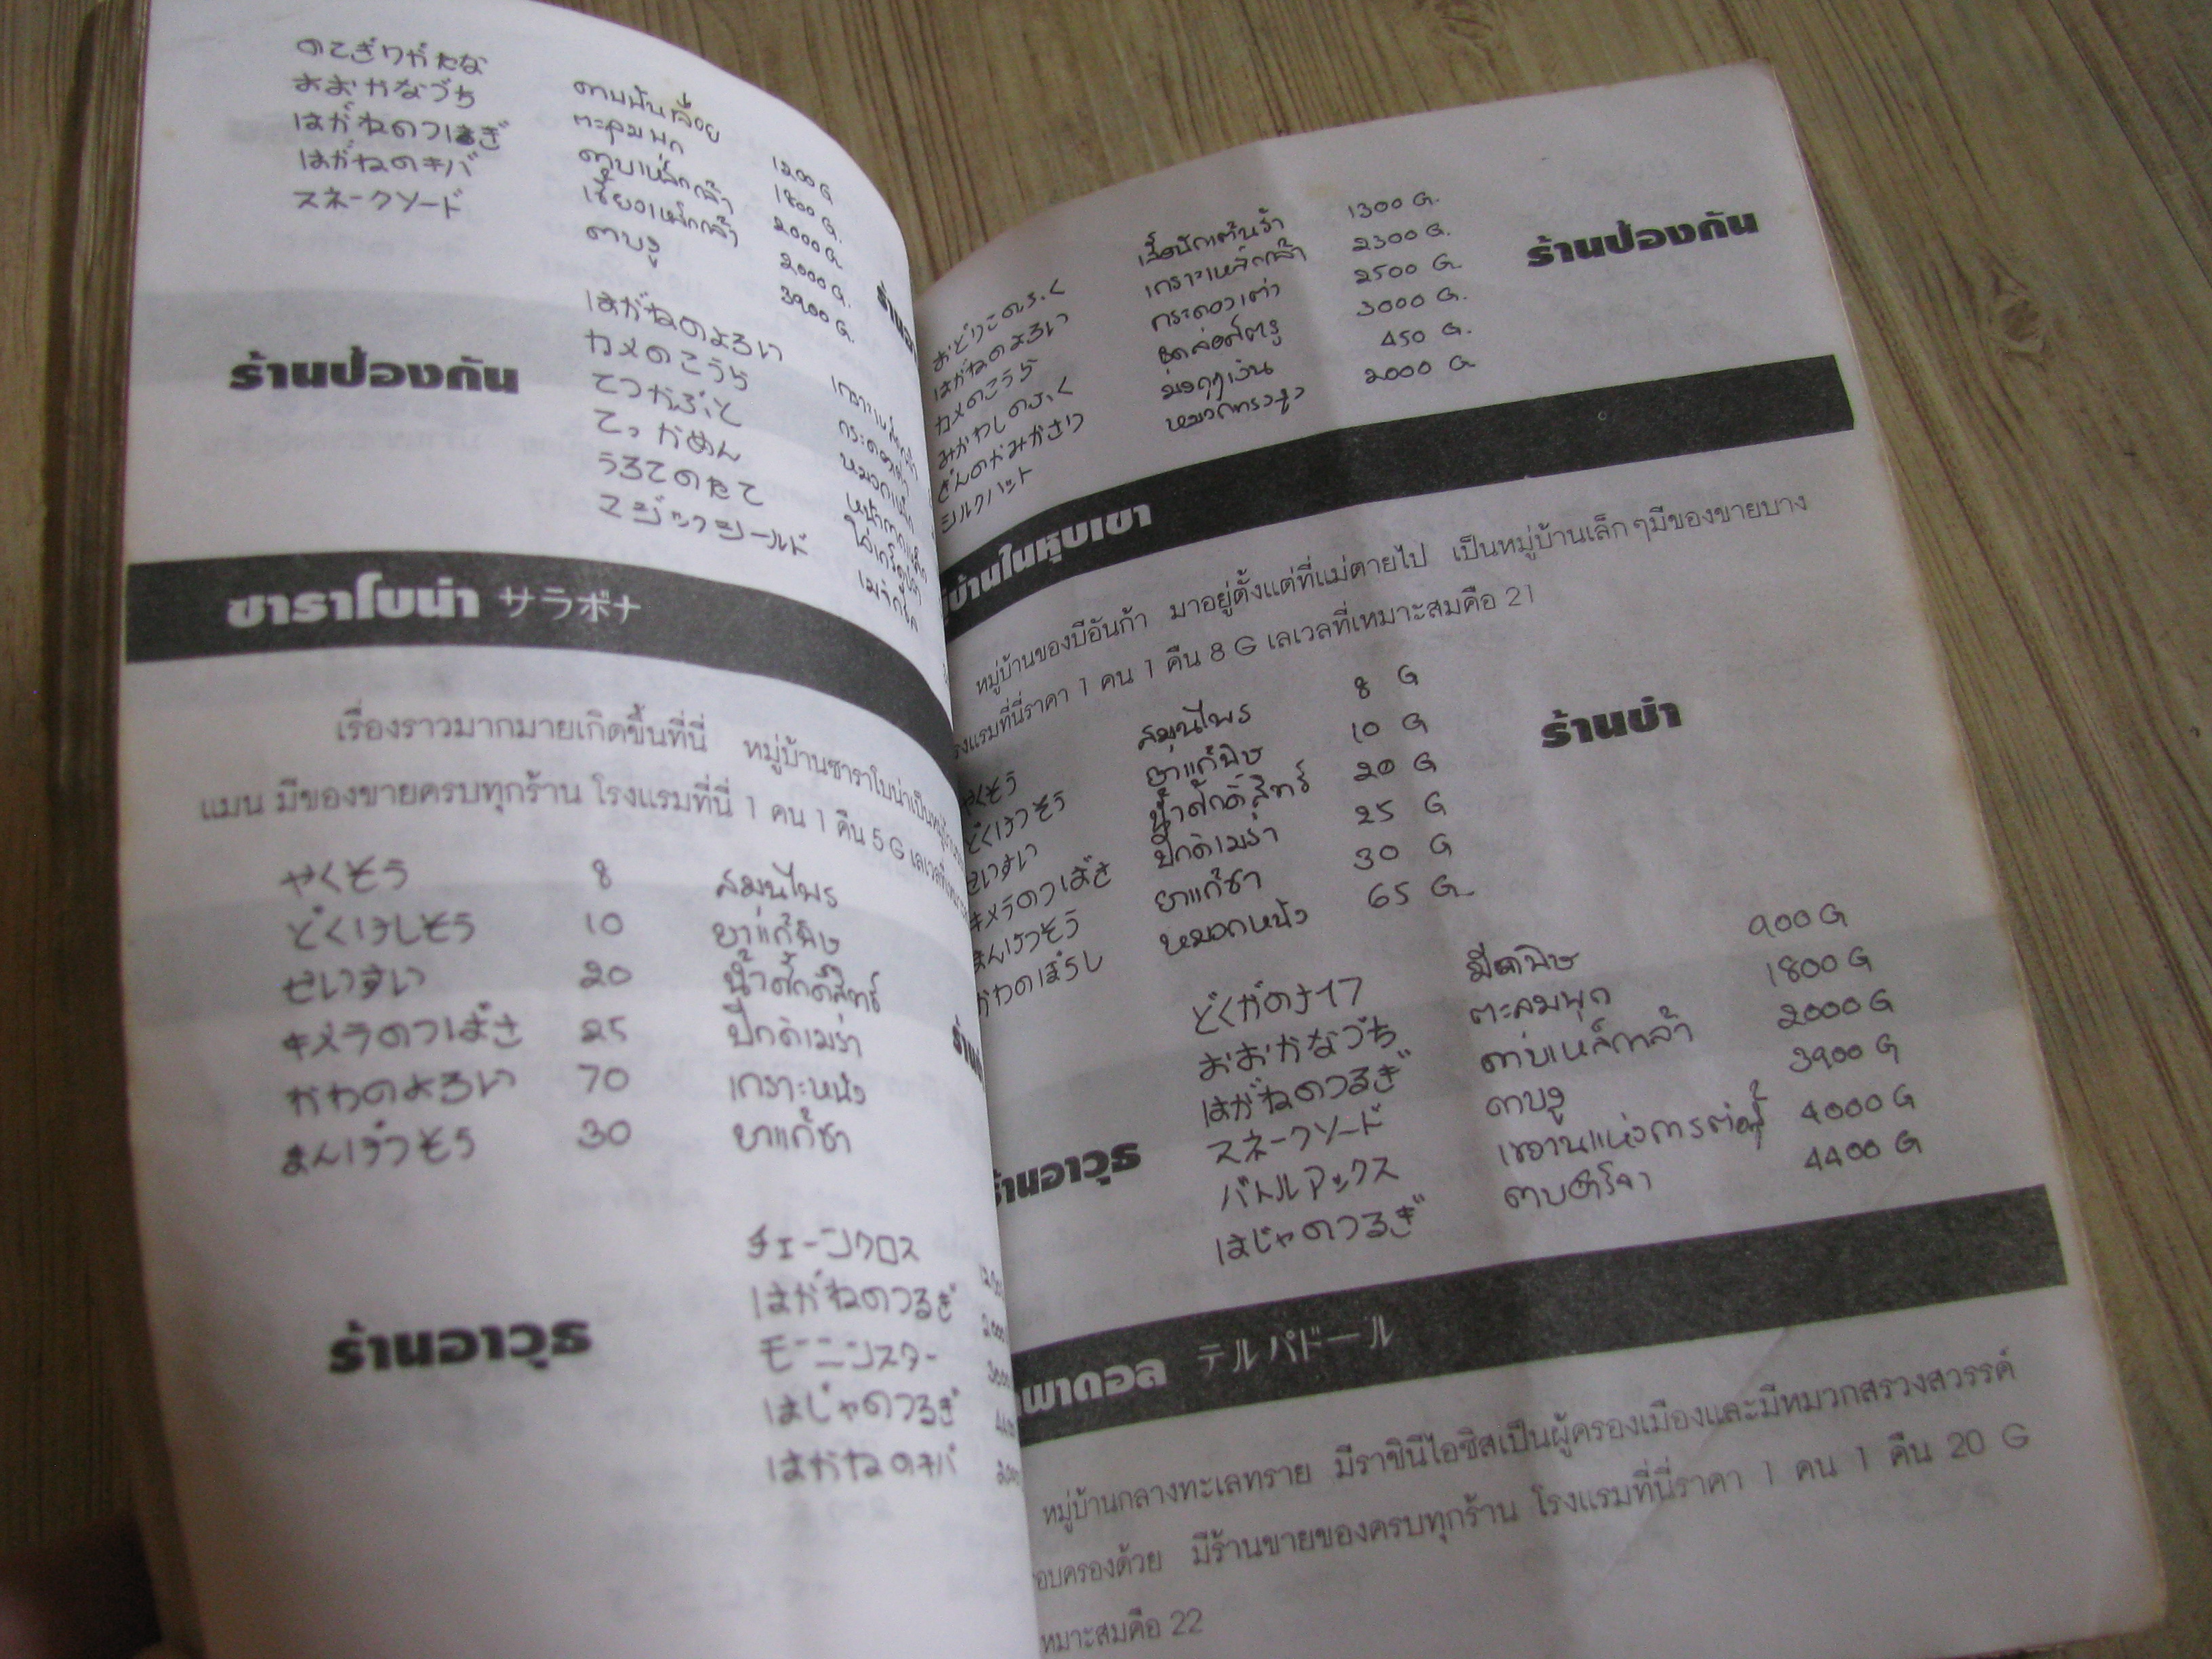 のこぎりがたな
おおかなづち
はがねのつるぎ
はがねのキバ
スネークソード
ดาบฟันเลื่อย
ตะลุมพุก
ดาบเหล็กกล้า
เขี้ยวเหล็กกล้า
ดาบงู
1200 G
1800 G.
2000 G.
2000 G.
3900 G.
ร้านป้องกัน
はがねのよろい
カメのこうら
てつかぶと
てっかめん
うろこのたて
マジックシールド
ซาราโบน่า サラボナ
เรื่องราวมากมายเกิดขึ้นที่นี่ หมู่บ้านซาราโบน่าเป็น
แมน มีของขายครบทุกร้าน โรงแรมที่นี่ 1 คน 1 คืน 5 G
やくそう 8 สมุนไพร
どくけしそう 10 ยาแก้พิษ
せいすい 20 น้ำศักดิ์สิทธิ์
キメラのつばさ 25 ปีกคิเมร่า
かわのよろい 70 เกราะหนัง
まんげつそう 30 ยาแก้ชา
ร้านอาวุธ
チェーンクロス
はがねのつるぎ
モーニンスター
はじゃのつるぎ
はがねのキバ
おどりこのふく เสื้อนักเต้นรำ 1300 G.
はがねのよろい เกราะเหล็กกล้า 2300 G.
カメのこうら กระดองเต่า 2500 G.
みかわしのふく 3000 G.
ぎんのかみかざり 450 G.
シルクハット หมวกทรงสูง 2000 G
ร้านป้องกัน
บ้านในหุบเขา
หมู่บ้านของบีอันก้า มาอยู่ตั้งแต่ที่แม่ตายไป เป็นหมู่บ้านเล็กๆมีของขายบาง
โรงแรมที่นี่ราคา 1 คน 1 คืน 8 G เลเวลที่เหมาะสมคือ 21
やくそう สมุนไพร 8 G
どくけしそう ยาแก้พิษ 10 G
せいすい น้ำศักดิ์สิทธิ์ 20 G
キメラのつばさ ปีกคิเมร่า 25 G
まんげつそう ยาแก้ชา 30 G
かわのぼうし หมวกหนัง 65 G
ร้านขำ
どくがのナイフ มีดพิษ 900 G
おおかなづち ตะลุมพุก 1800 G
はがねのつるぎ ดาบเหล็กกล้า 2000 G
スネークソード ดาบงู 3900 G
バトルアックス ขวานแห่งการต่อสู้ 4000 G
はじゃのつるぎ 4400 G
ร้านอาวุธ
พาดอล テルパドール
หมู่บ้านกลางทะเลทราย มีราชินีไอซิสเป็นผู้ครองเมืองและมีหมวกสรวงสวรรค์
อบครองด้วย มีร้านขายของครบทุกร้าน โรงแรมที่นี่ราคา 1 คน 1 คืน 20 G
หมาะสมคือ 22